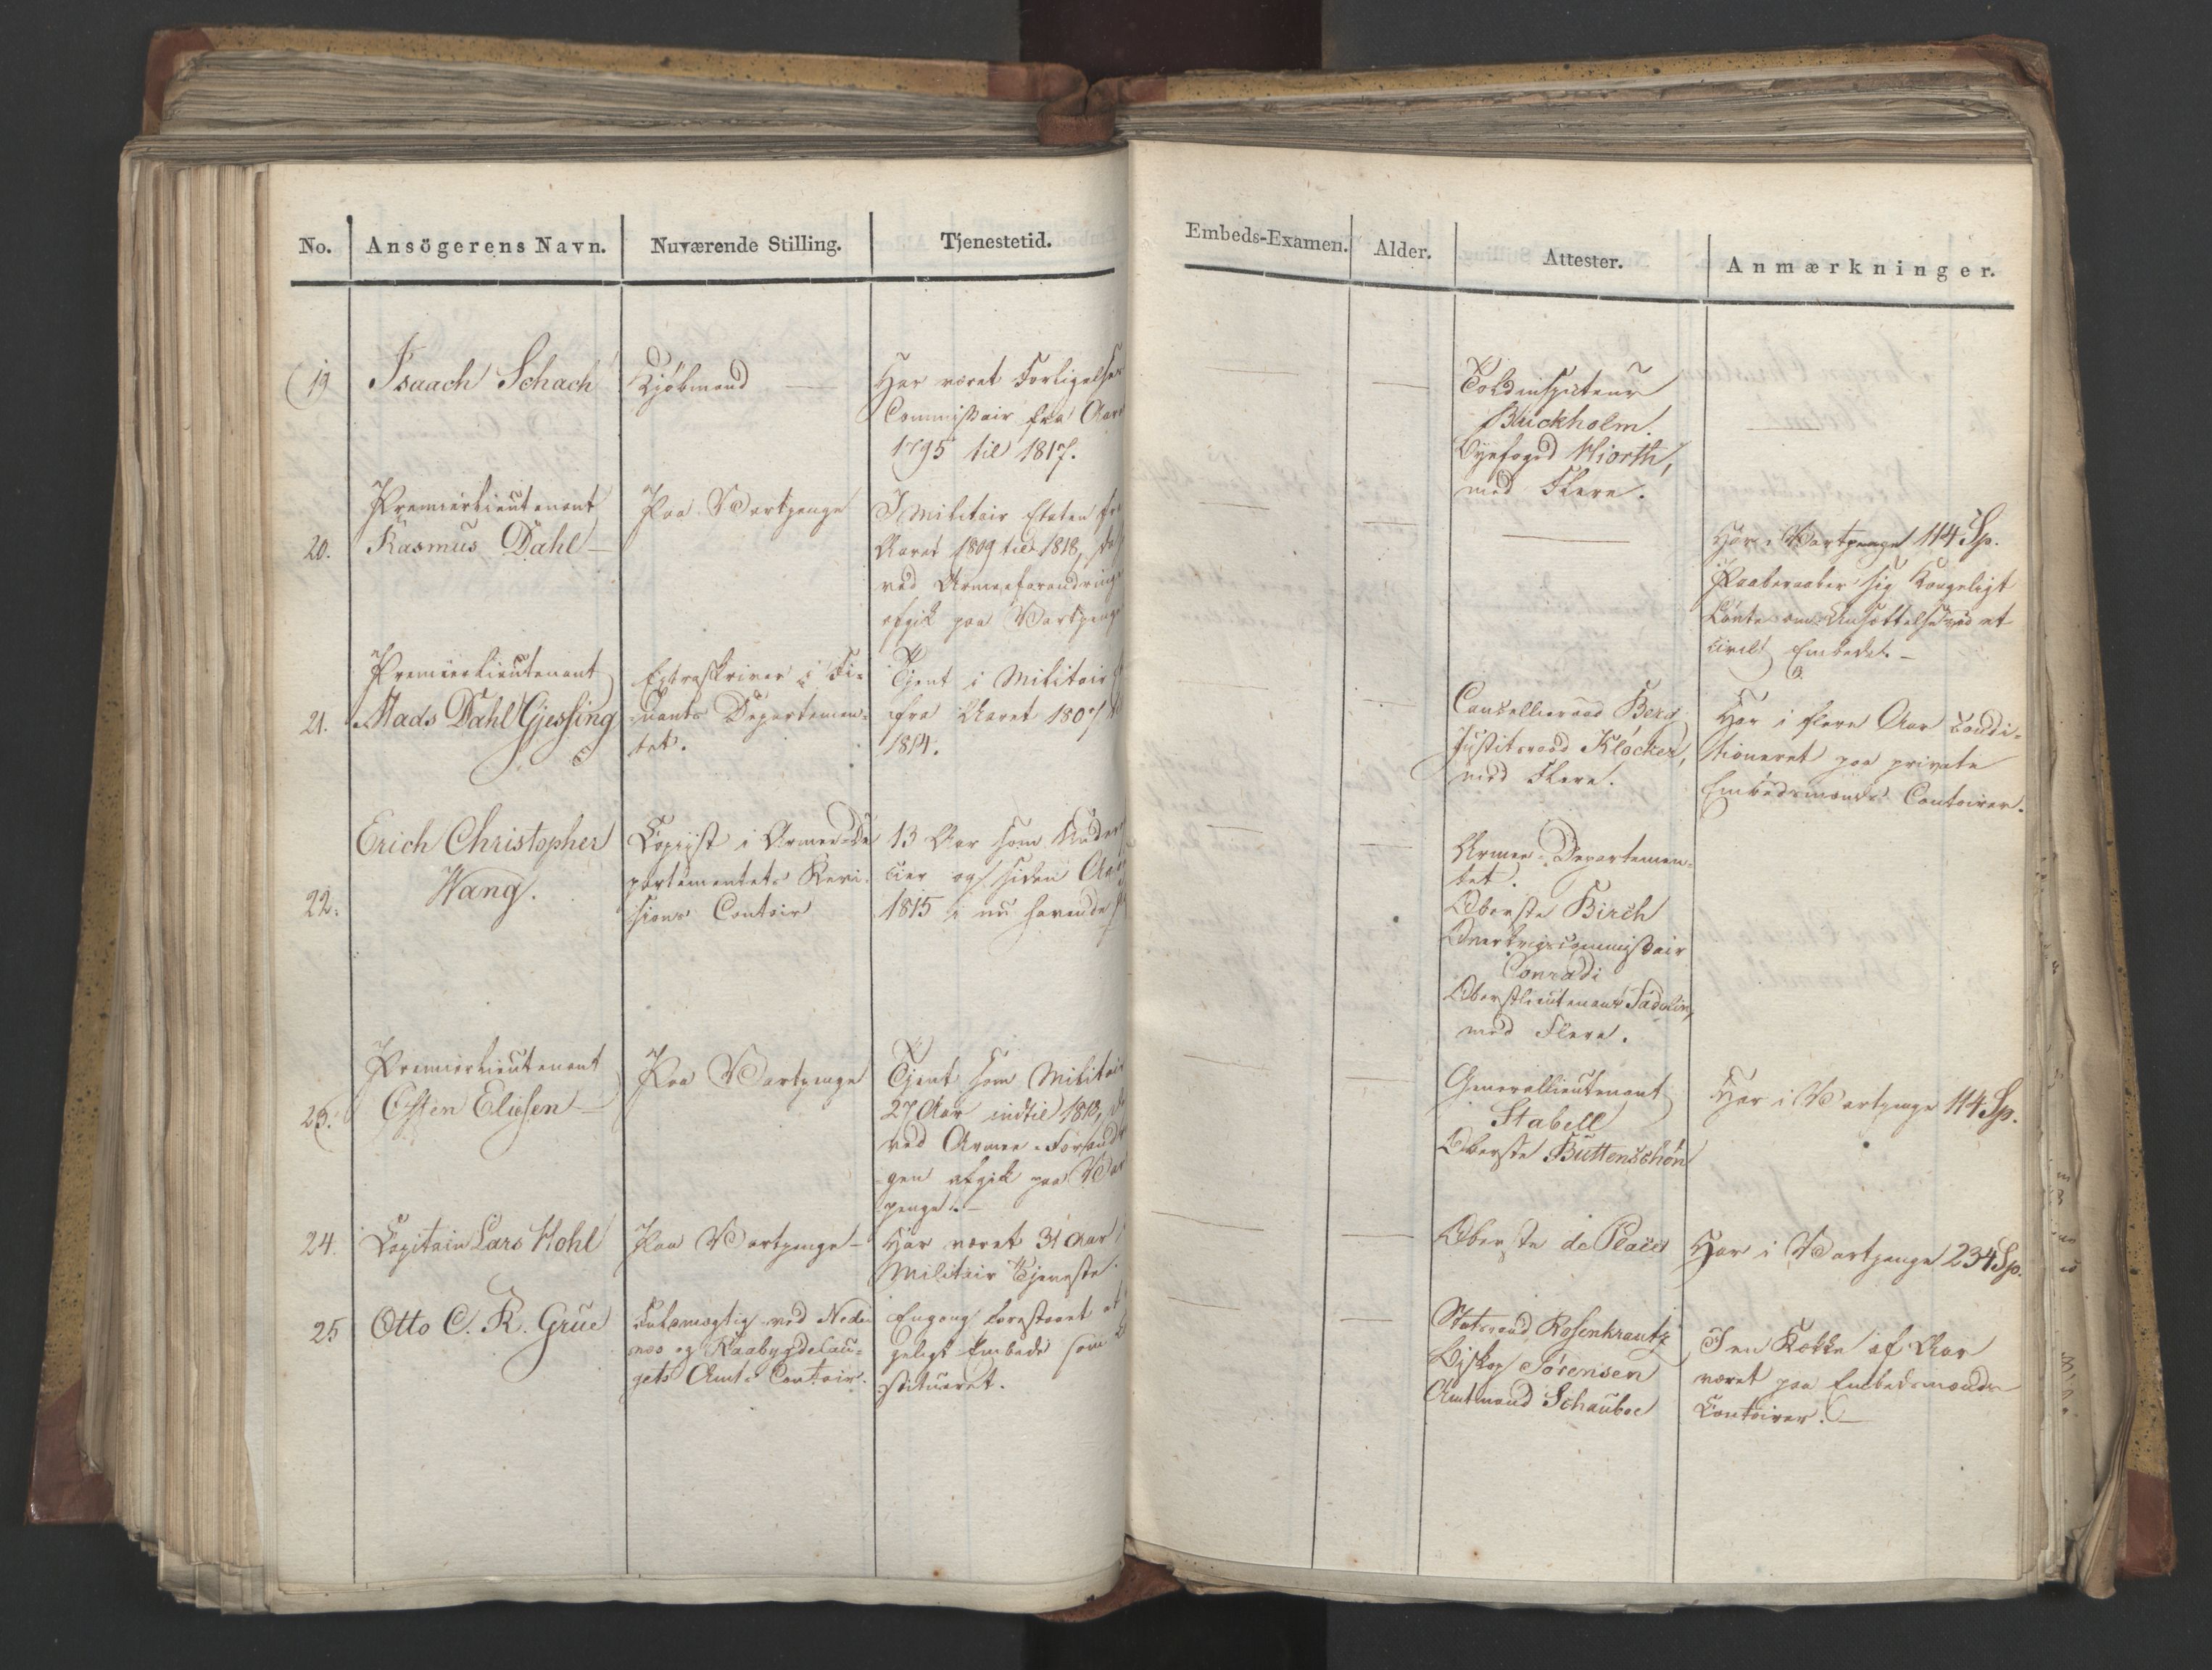 No. Ansögerens Navn. Nuværende Stilling. Tjenestetid. Embeds-Examen. Alder. Attester. Anmærkninger.
19 Isaach Schach
Kjøbmand —
Har været Forligelses
Commissair fra Aaret
1795 til 1817.
Toldinspecteur
Buckholm.
Byefoged Hiorth,
med Flere.
Premierlieutenant
20. Rasmus Dahl —
Paa Vartpenge
I Militair Etaten fra
Aaret 1809 til 1818,
ved Armeeforandringen
afgik paa Vartpenge
Har i Vartpenge 114 Sp.
Paaberaaber sig Kongeligt
Løvte om Ansættelse ved et
civilt Embede. —
Premierlieutenant
21. Mads Dahl Gjessing
Extraskriver i Fi-
nants Departemen-
tet.
Tjent i Militair
fra Aaret 1807
1814.
Cancellieraad Berg
Justitsraad Kløcker,
med Flere.
Har i flere Aar condi-
tioneret paa private
Embedsmænds Contoirer.
Erich Christopher
22. Wang.
Copiist i Armee-De
partementets Revi-
sions Contoir
13 Aar som Under
cier og siden Aaret
1815 i nu havende
Armee-Departemen-
tet.
Oberste Birch
Overkrigscommissair
Conradi
Oberstlieutenant Fadolin,
med Flere.
Premierlieutenant
23. Osten Eliesen —
Paa Vartpenge
Tjent som Militair
27 Aar indtil 1818,
ved Armee-Forandrin
gen afgik paa Vart
penge. —
Generallieutenant
Stabell
Oberste Büttenschøn
Har i Vartpenge 114 Sp.
24. Capitain Lars Hohl
Paa Vartpenge —
Har været 31 Aar i
Militair Tjeneste.
Oberste de Place
Har i Vartpenge 234 Sp.
25 Otto C. R. Grue
Fuldmægtig ved Nede
næs og Raabygdelau-
gets Amts Contoir.
Engang forestaaet et
geligt Embede som
stitueret.
Statsraad Rosenkrantz
Biskop Sørensen
Amtmand Schouboe
I en Række af Aar
været paa Embedsmænds
Contoirer. —